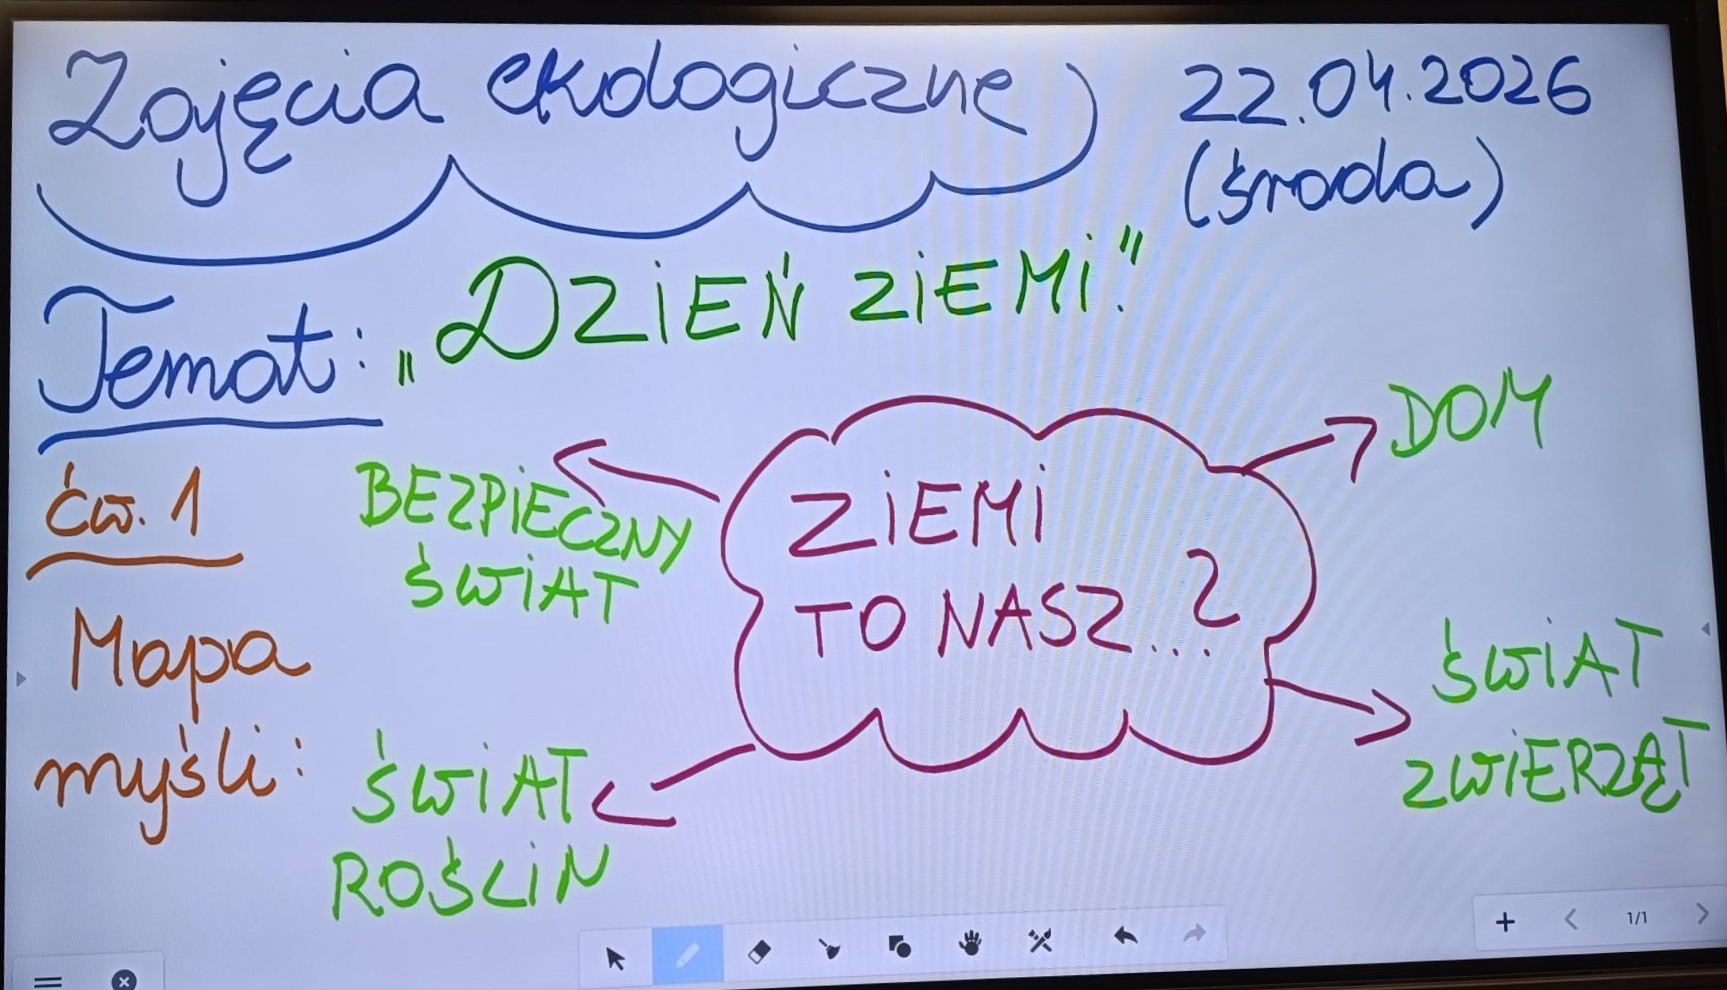 Zajęcia ekologiczne
22.04.2026
(środa)
Temat: „DZIEŃ ZIEMI."
ćw. 1
Mapa
myśli:
ZIEMI
TO NASZ...?
BEZPIECZNY
ŚWIAT
DOM
ŚWIAT
ROŚLIN
ŚWIAT
ZWIERZĄT
1/1